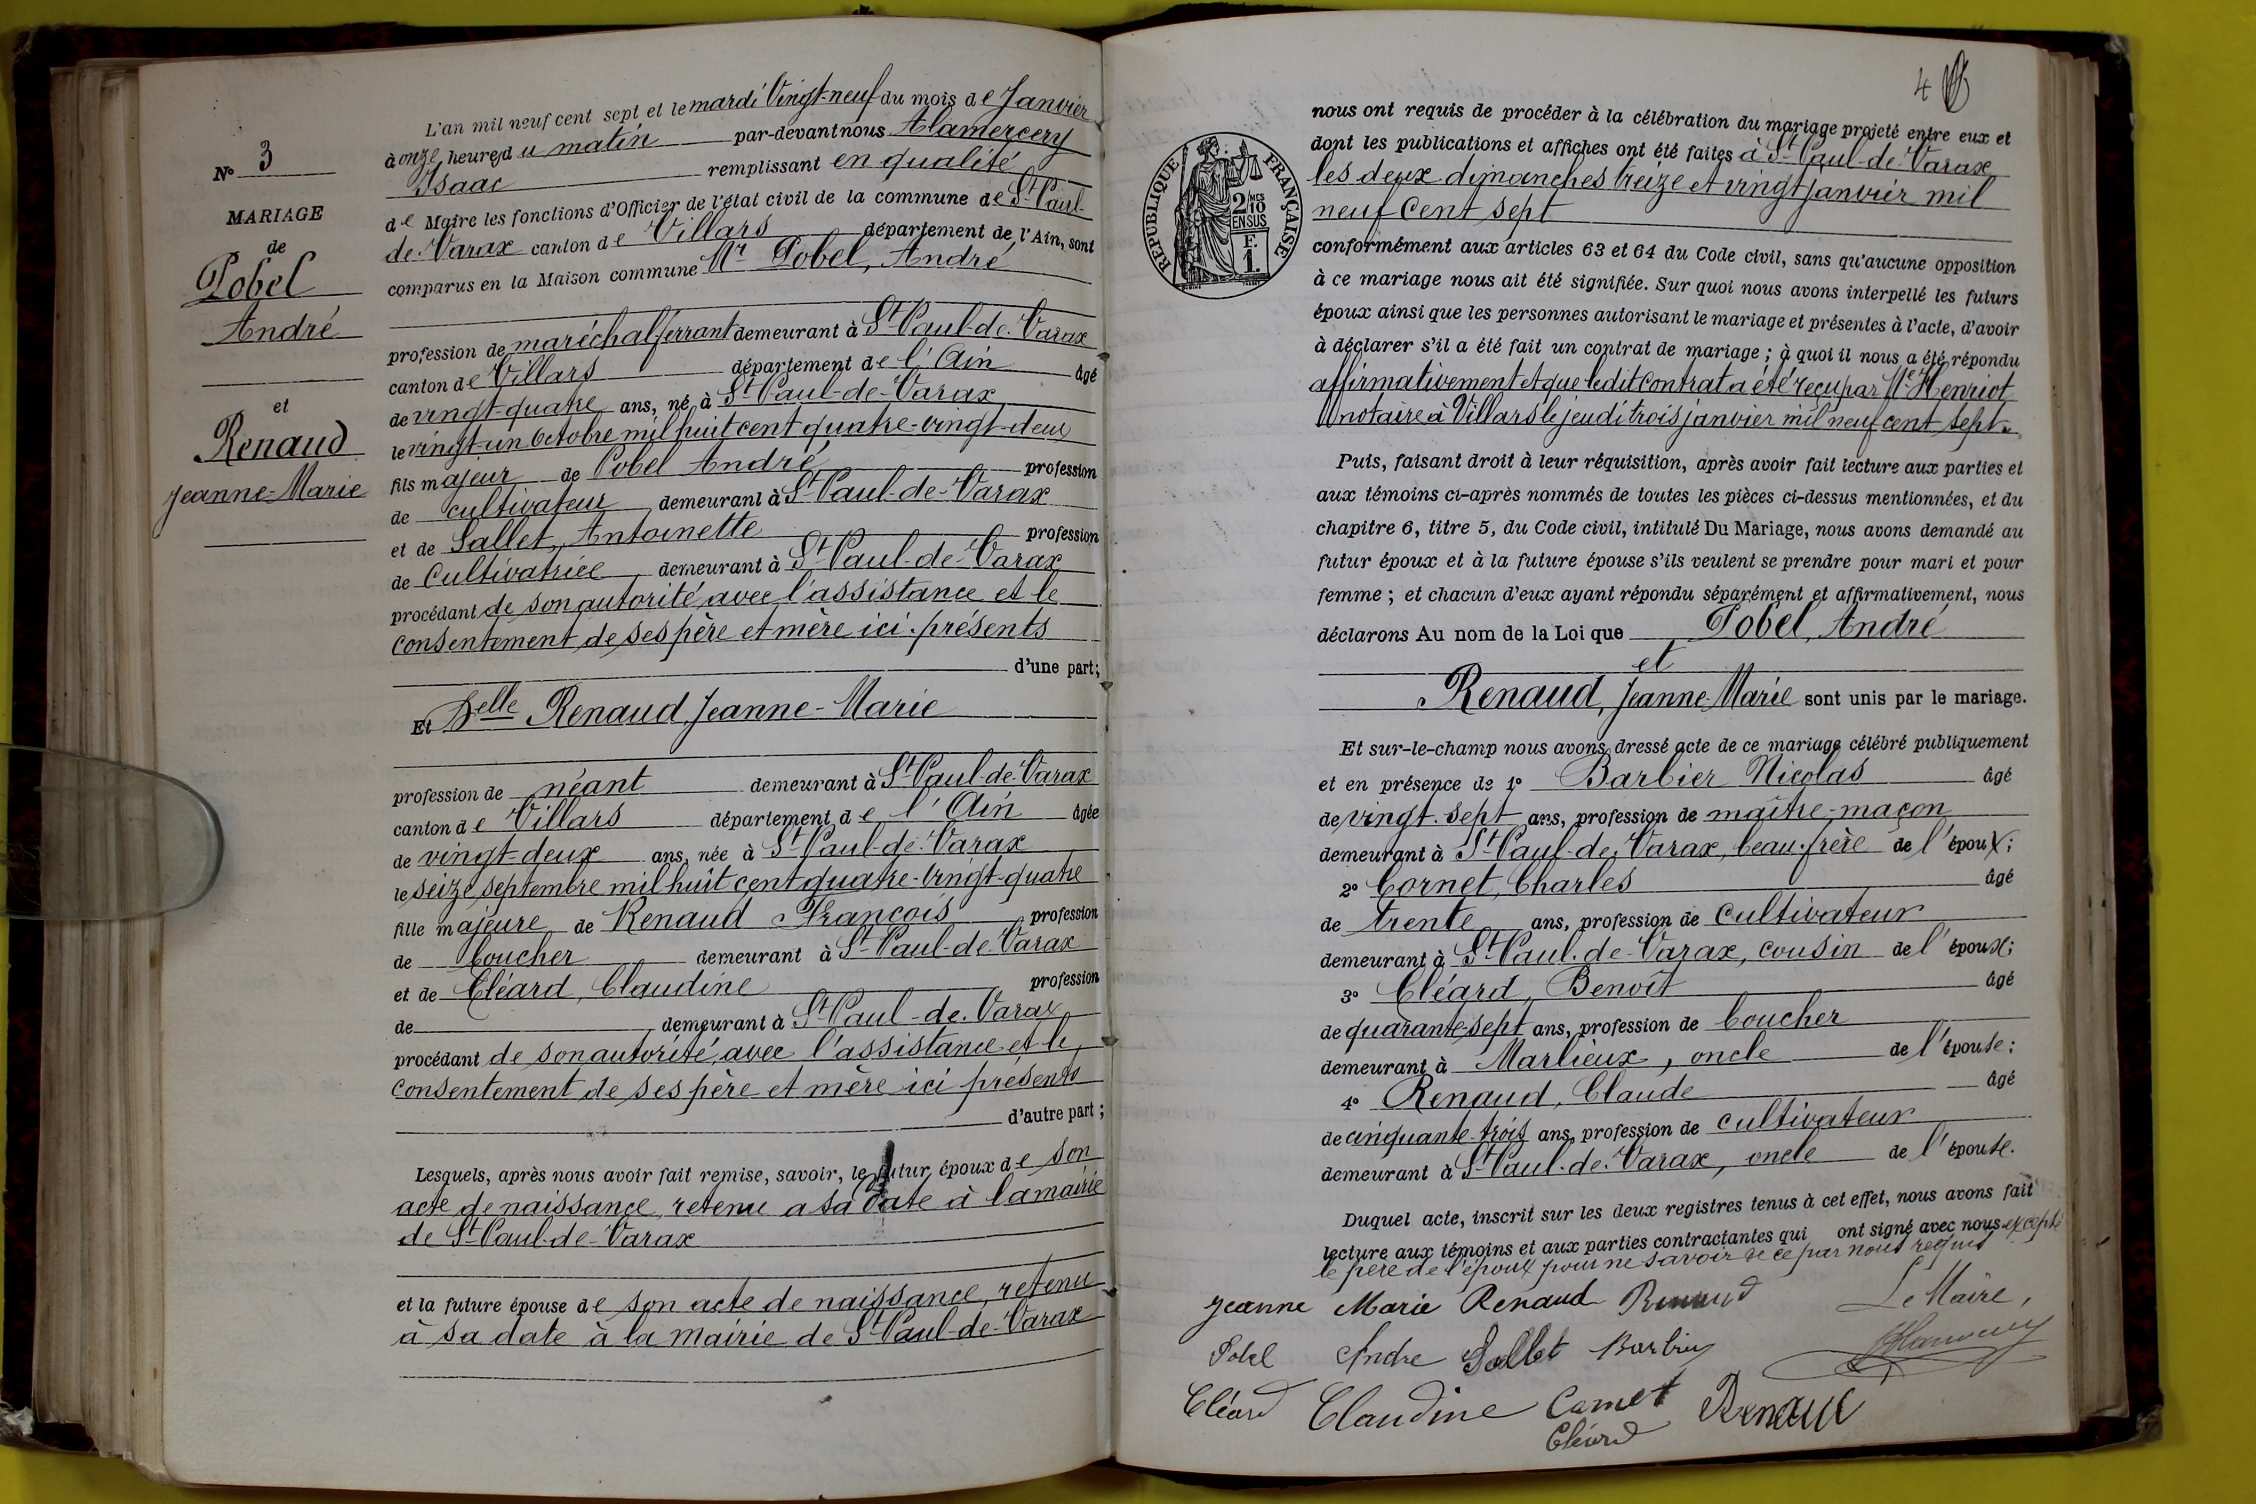 N° 3
MARIAGE
de
Pobel
André
et
Renaud
Jeanne-Marie
L'an mil neuf cent sept et le mardi Vingt-neuf du mois de Janvier
à onze heures du matin par-devant nous Alamercery
Isaac remplissant en qualité
de Maire les fonctions d'Officier de l'état civil de la commune de St Paul-
de-Varax canton de Villars département de l'Ain, sont
comparus en la Maison commune Mr Pobel, André
profession de maréchal ferrant demeurant à St Paul-de-Varax
canton de Villars département de l'Ain âgé
de vingt-quatre ans, né à St Paul-de-Varax
le vingt-un Octobre mil huit cent quatre-vingt-deux
fils majeur de Pobel André profession
de cultivateur demeurant à St Paul-de-Varax
et de Sallet, Antoinette profession
de Cultivatrice demeurant à St Paul-de-Varax
procédant de son autorité avec l'assistance et le
consentement de ses père et mère ici présents
d'une part;
Et Delle Renaud, Jeanne-Marie
profession de néant demeurant à St Paul-de-Varax
canton de Villars département de l'Ain âgée
de vingt-deux ans, née à St Paul-de-Varax
le seize septembre mil huit cent quatre-vingt-quatre
fille majeure de Renaud François profession
de boucher demeurant à St Paul-de-Varax
et de Cléard, Claudine profession
de demeurant à St Paul-de-Varax
procédant de son autorité avec l'assistance et le
consentement de ses père et mère ici présents
d'autre part;
Lesquels, après nous avoir fait remise, savoir, le futur époux de son
acte de naissance, retenu a sa date à la mairie
de St Paul-de-Varax
et la future épouse de son acte de naissance, retenu
à sa date à la mairie de St Paul-de-Varax
4
RÉPUBLIQUE FRANÇAISE
2/10 MES
EN SUS
F.
1.
nous ont requis de procéder à la célébration du mariage projeté entre eux et
dont les publications et affiches ont été faites à St Paul-de-Varax
les deux dimanches treize et vingt janvier mil
neuf cent sept
conformément aux articles 63 et 64 du Code civil, sans qu'aucune opposition
à ce mariage nous ait été signifiée. Sur quoi nous avons interpellé les futurs
époux ainsi que les personnes autorisant le mariage et présentes à l'acte, d'avoir
à déclarer s'il a été fait un contrat de mariage; à quoi il nous a été répondu
affirmativement et que ledit contrat a été reçu par Me Henriot
notaire à Villars le jeudi trois janvier mil neuf cent sept.
Puis, faisant droit à leur réquisition, après avoir fait lecture aux parties et
aux témoins ci-après nommés de toutes les pièces ci-dessus mentionnées, et du
chapitre 6, titre 5, du Code civil, intitulé Du Mariage, nous avons demandé au
futur époux et à la future épouse s'ils veulent se prendre pour mari et pour
femme; et chacun d'eux ayant répondu séparément et affirmativement, nous
déclarons Au nom de la Loi que Pobel, André
et
Renaud, Jeanne-Marie sont unis par le mariage.
Et sur-le-champ nous avons dressé acte de ce mariage célébré publiquement
et en présence de 1° Barbier Nicolas âgé
de vingt-sept ans, profession de maître-maçon
demeurant à St Paul-de-Varax, beau-frère de l'époux;
2° Cornet, Charles âgé
de trente ans, profession de cultivateur
demeurant à St Paul-de-Varax, cousin de l'époux;
3° Cléard, Benoît âgé
de quarante-sept ans, profession de boucher
demeurant à Marlieux, oncle de l'épouse;
4° Renaud, Claude âgé
de cinquante-trois ans, profession de cultivateur
demeurant à St Paul-de-Varax, oncle de l'épouse.
Duquel acte, inscrit sur les deux registres tenus à cet effet, nous avons fait
lecture aux témoins et aux parties contractantes qui ont signé avec nous excepté
le père de l'époux pour ne savoir de ce par nous requis
Jeanne Marie Renaud Renaud Le Maire,
Pobel Andre Sallet Barbier Alamercery
Cléard Claudine Cornet Renaud
Cléard